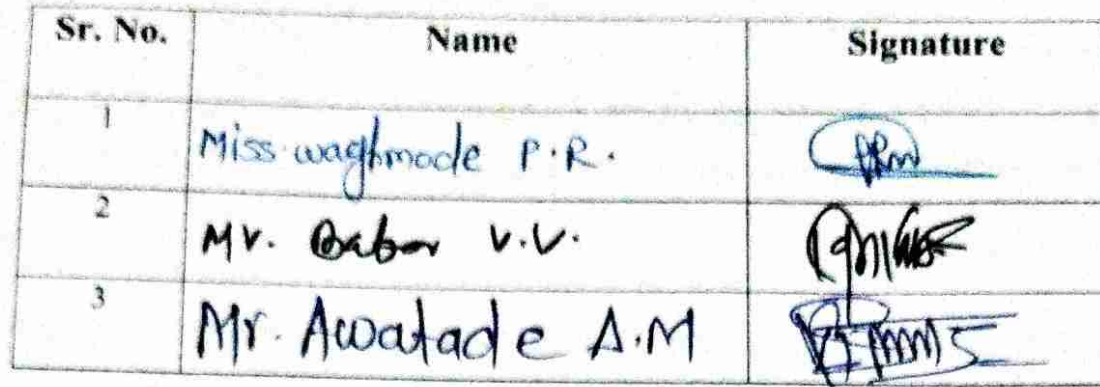 Sr. No. Name Signature
1 Miss waghmode P.R.
2 Mr. Babar V.V.
3 Mr. Awatade A.M